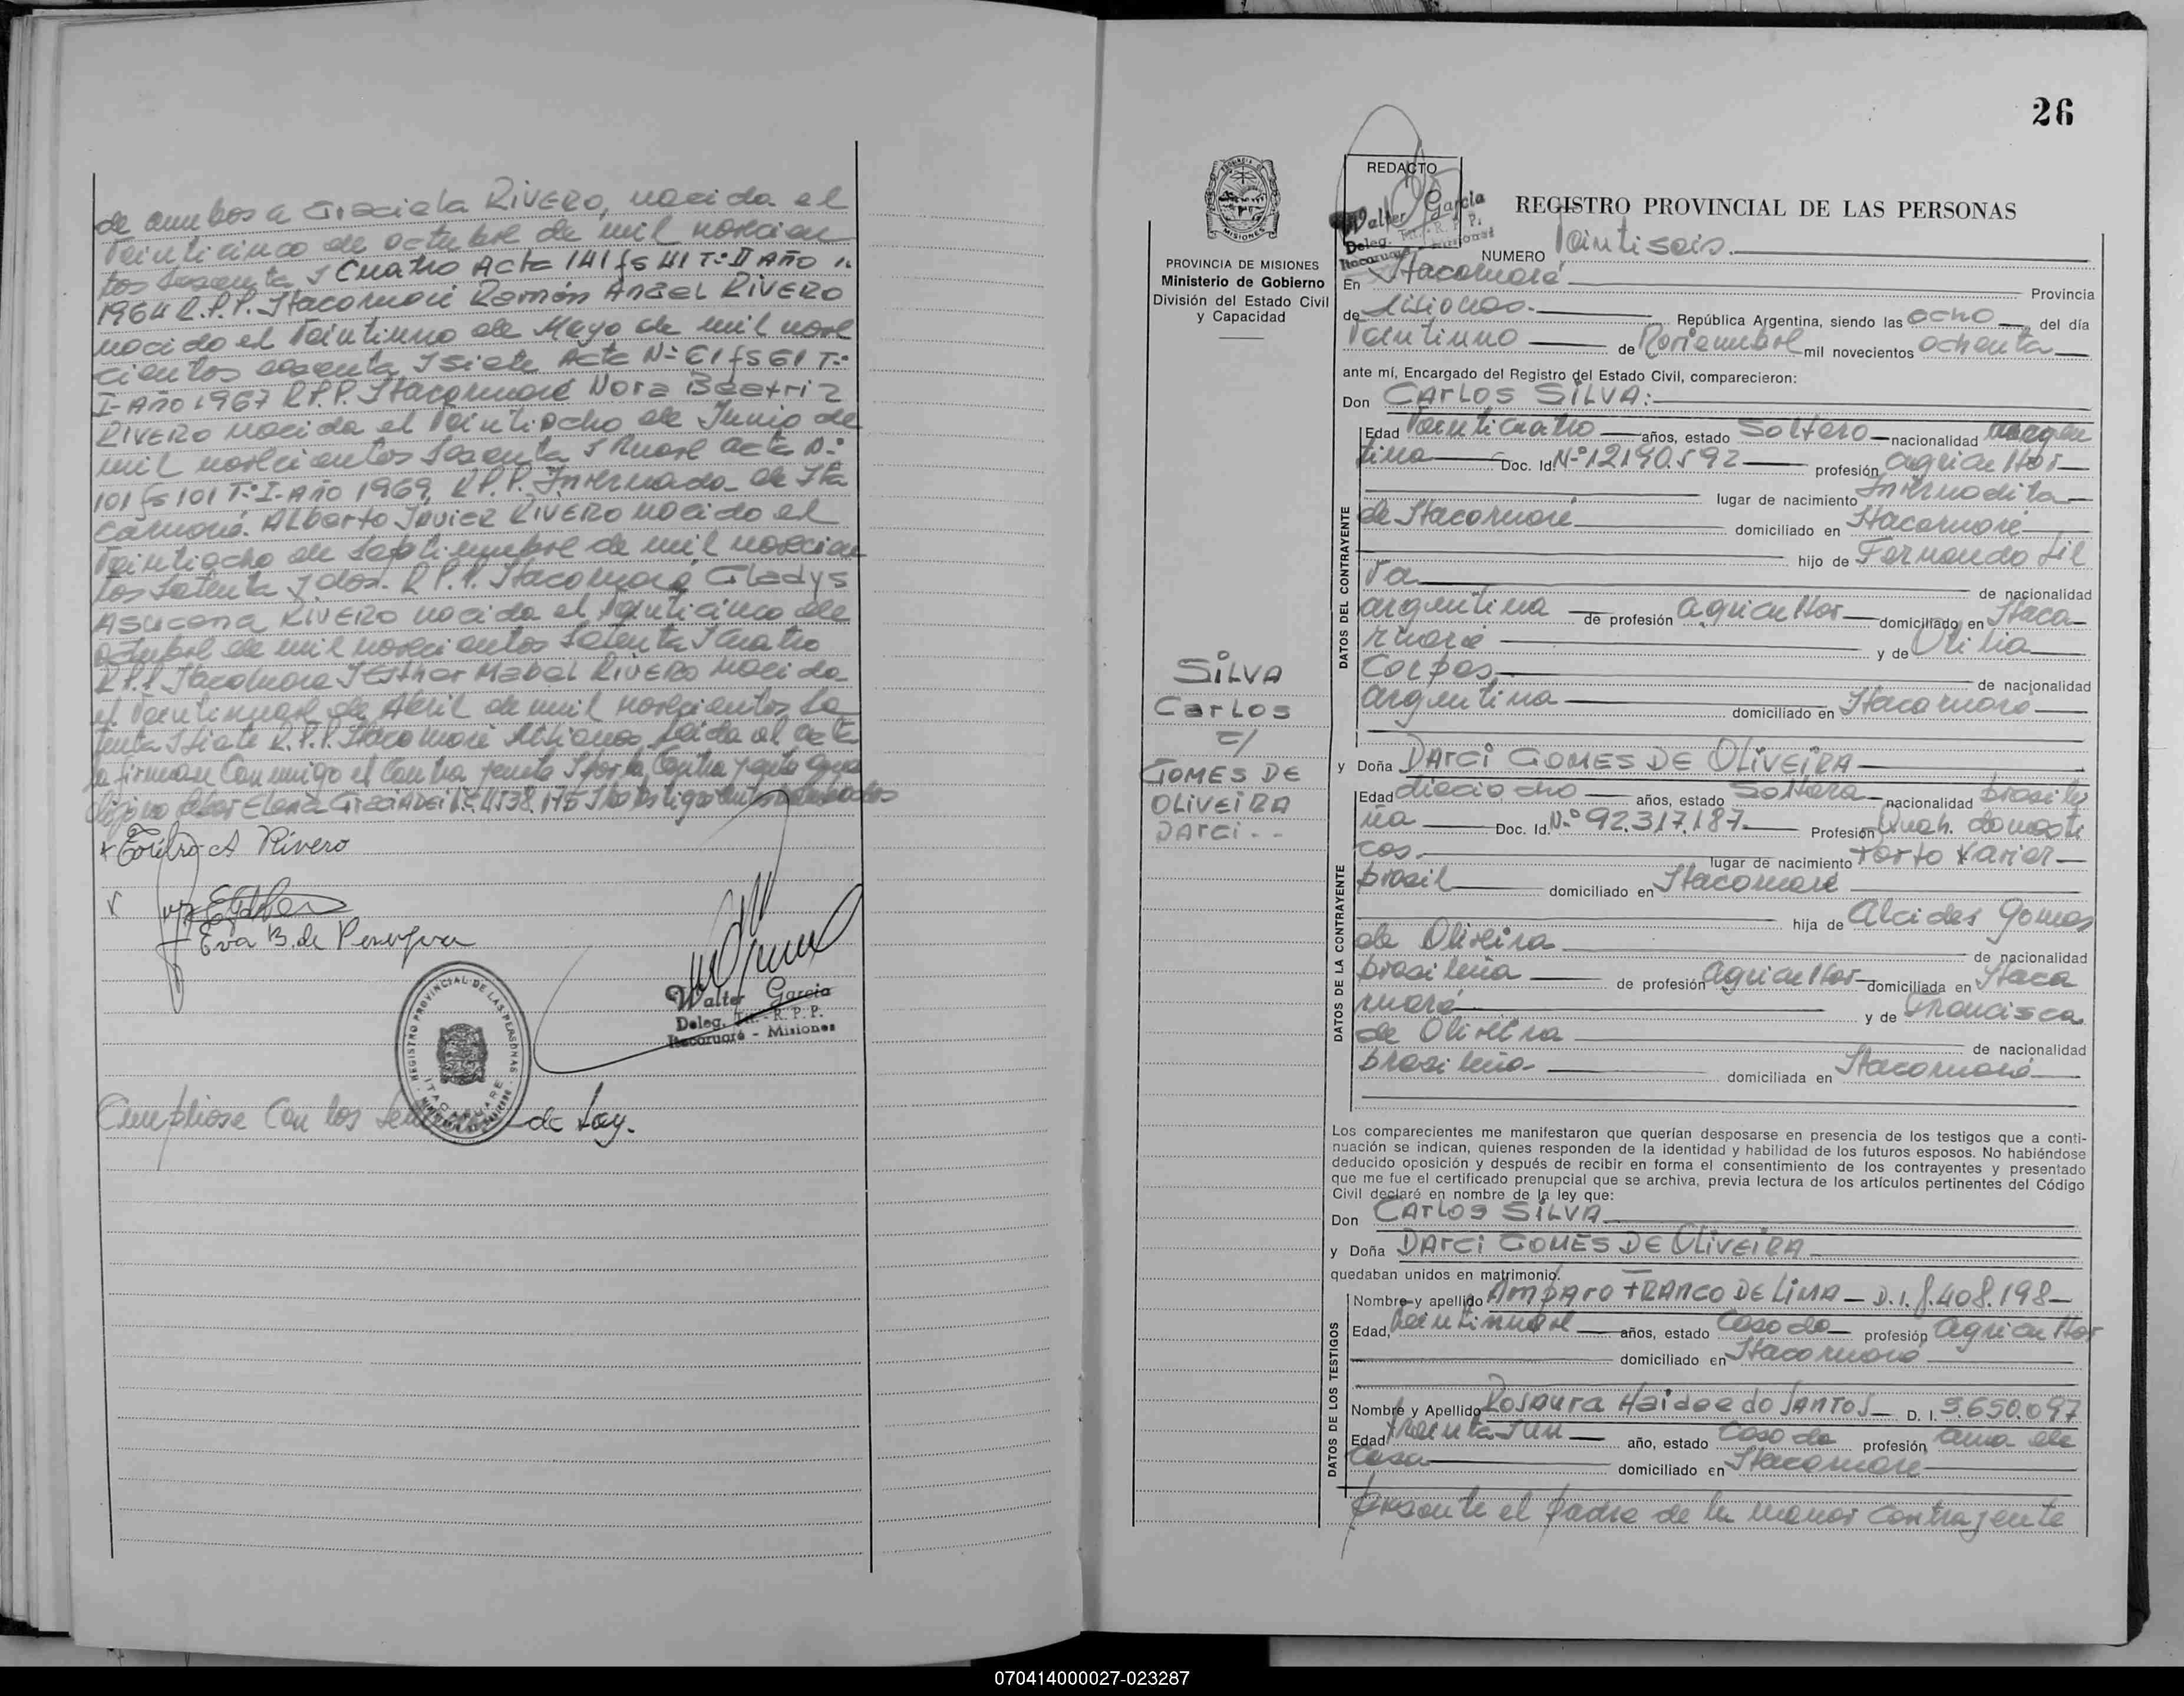 de ambos a Graciela RIVERO, nacida el
veinticinco de octubre de mil novecien
tos sesenta y cuatro Acta 141 fs 41 T: II Año
1964 R.P.P. Itacaruaré Ramón Angel RIVERO
nacido el veintiuno de Mayo de mil nove
cientos sesenta y siete Acta Nº 61 fs 61 T:
I- Año 1967 R.P.P. Itacaruaré Nora Beatriz
RIVERO nacida el veintiocho de Junio de
mil novecientos sesenta y nueve acta Nº
101 fs 101 T: I- Año 1969, R.P.P. Intermedia de Ita
caruaré. Alberto Javier RIVERO nacido el
veintiocho de septiembre de mil novecien
tos setenta y dos. R.P.P. Itacaruaré Gladys
Asucena RIVERO nacida el veinticinco de
octubre de mil novecientos setenta y cuatro
R.P.P. Itacaruaré y Esther Mabel RIVERO nacida
el veintinueve de Abril de mil novecientos se
tenta y siete R.P.P. Itacaruaré Misiones. Leida el acta
la firman conmigo el contrayente y por la contrayente que
REGISTRO PROVINCIAL DE LAS PERSONAS
ITACARUARE
Walter Garcia
Deleg. Tit. - R. P. P.
Itacaruaré - Misiones
Cumpliose con los de Ley.
26
PROVINCIA DE MISIONES
Ministerio de Gobierno
División del Estado Civil
y Capacidad
SILVA
Carlos
c/
GOMES DE
OLIVEIRA
DARCI --
REDACTO
Walter Garcia
REGISTRO PROVINCIAL DE LAS PERSONAS
NUMERO Veintiseis.
En Itacaruaré Provincia
de Misiones. República Argentina, siendo las ocho del día
Veintiuno de Noviembre mil novecientos ochenta
ante mí, Encargado del Registro del Estado Civil, comparecieron:
Don CARLOS SILVA:
DATOS DEL CONTRAYENTE
Edad Veinticuatro años, estado Soltero nacionalidad argen
tina Doc. Id. Nº 12.190.592 profesión agricultor
lugar de nacimiento Intermedia
de Itacaruaré domiciliado en Itacaruaré
hijo de Fernando Sil
va de nacionalidad
argentina de profesión agricultor domiciliado en Itaca
ruaré y de Otilia
Corpes de nacionalidad
argentina domiciliado en Itacaruaré
y Doña DARCI GOMES DE OLIVEIRA
DATOS DE LA CONTRAYENTE
Edad dieciocho años, estado Soltera nacionalidad brasile
ña Doc. Id. Nº 92.317.187 Profesión Queh. domesti
cos. lugar de nacimiento Porto Xavier
brasil domiciliado en Itacaruaré
hija de Alcides Gomes
de Oliveira de nacionalidad
brasileña de profesión agricultor domiciliada en Itaca
ruaré y de Francisca
de Oliveira de nacionalidad
brasileña domiciliada en Itacaruaré
Los comparecientes me manifestaron que querían desposarse en presencia de los testigos que a conti-
nuación se indican, quienes responden de la identidad y habilidad de los futuros esposos. No habiéndose
deducido oposición y después de recibir en forma el consentimiento de los contrayentes y presentado
que me fue el certificado prenupcial que se archiva, previa lectura de los artículos pertinentes del Código
Civil declaré en nombre de la ley que:
Don CARLOS SILVA
y Doña DARCI GOMES DE OLIVEIRA
quedaban unidos en matrimonio.
DATOS DE LOS TESTIGOS
Nombre y apellido AMPARO FRANCO DE LIMA - D.I. 8.408.198
Edad, veintinueve años, estado Casado profesión agricultor
domiciliado en Itacaruaré
Nombre y Apellido Rosaura Haidee do SANTOS D. I. 5.650.097
Edad treinta y un año, estado Casada profesión ama de
casa domiciliado en Itacaruaré
presente el padre de la menor contrayente
070414000027-023287